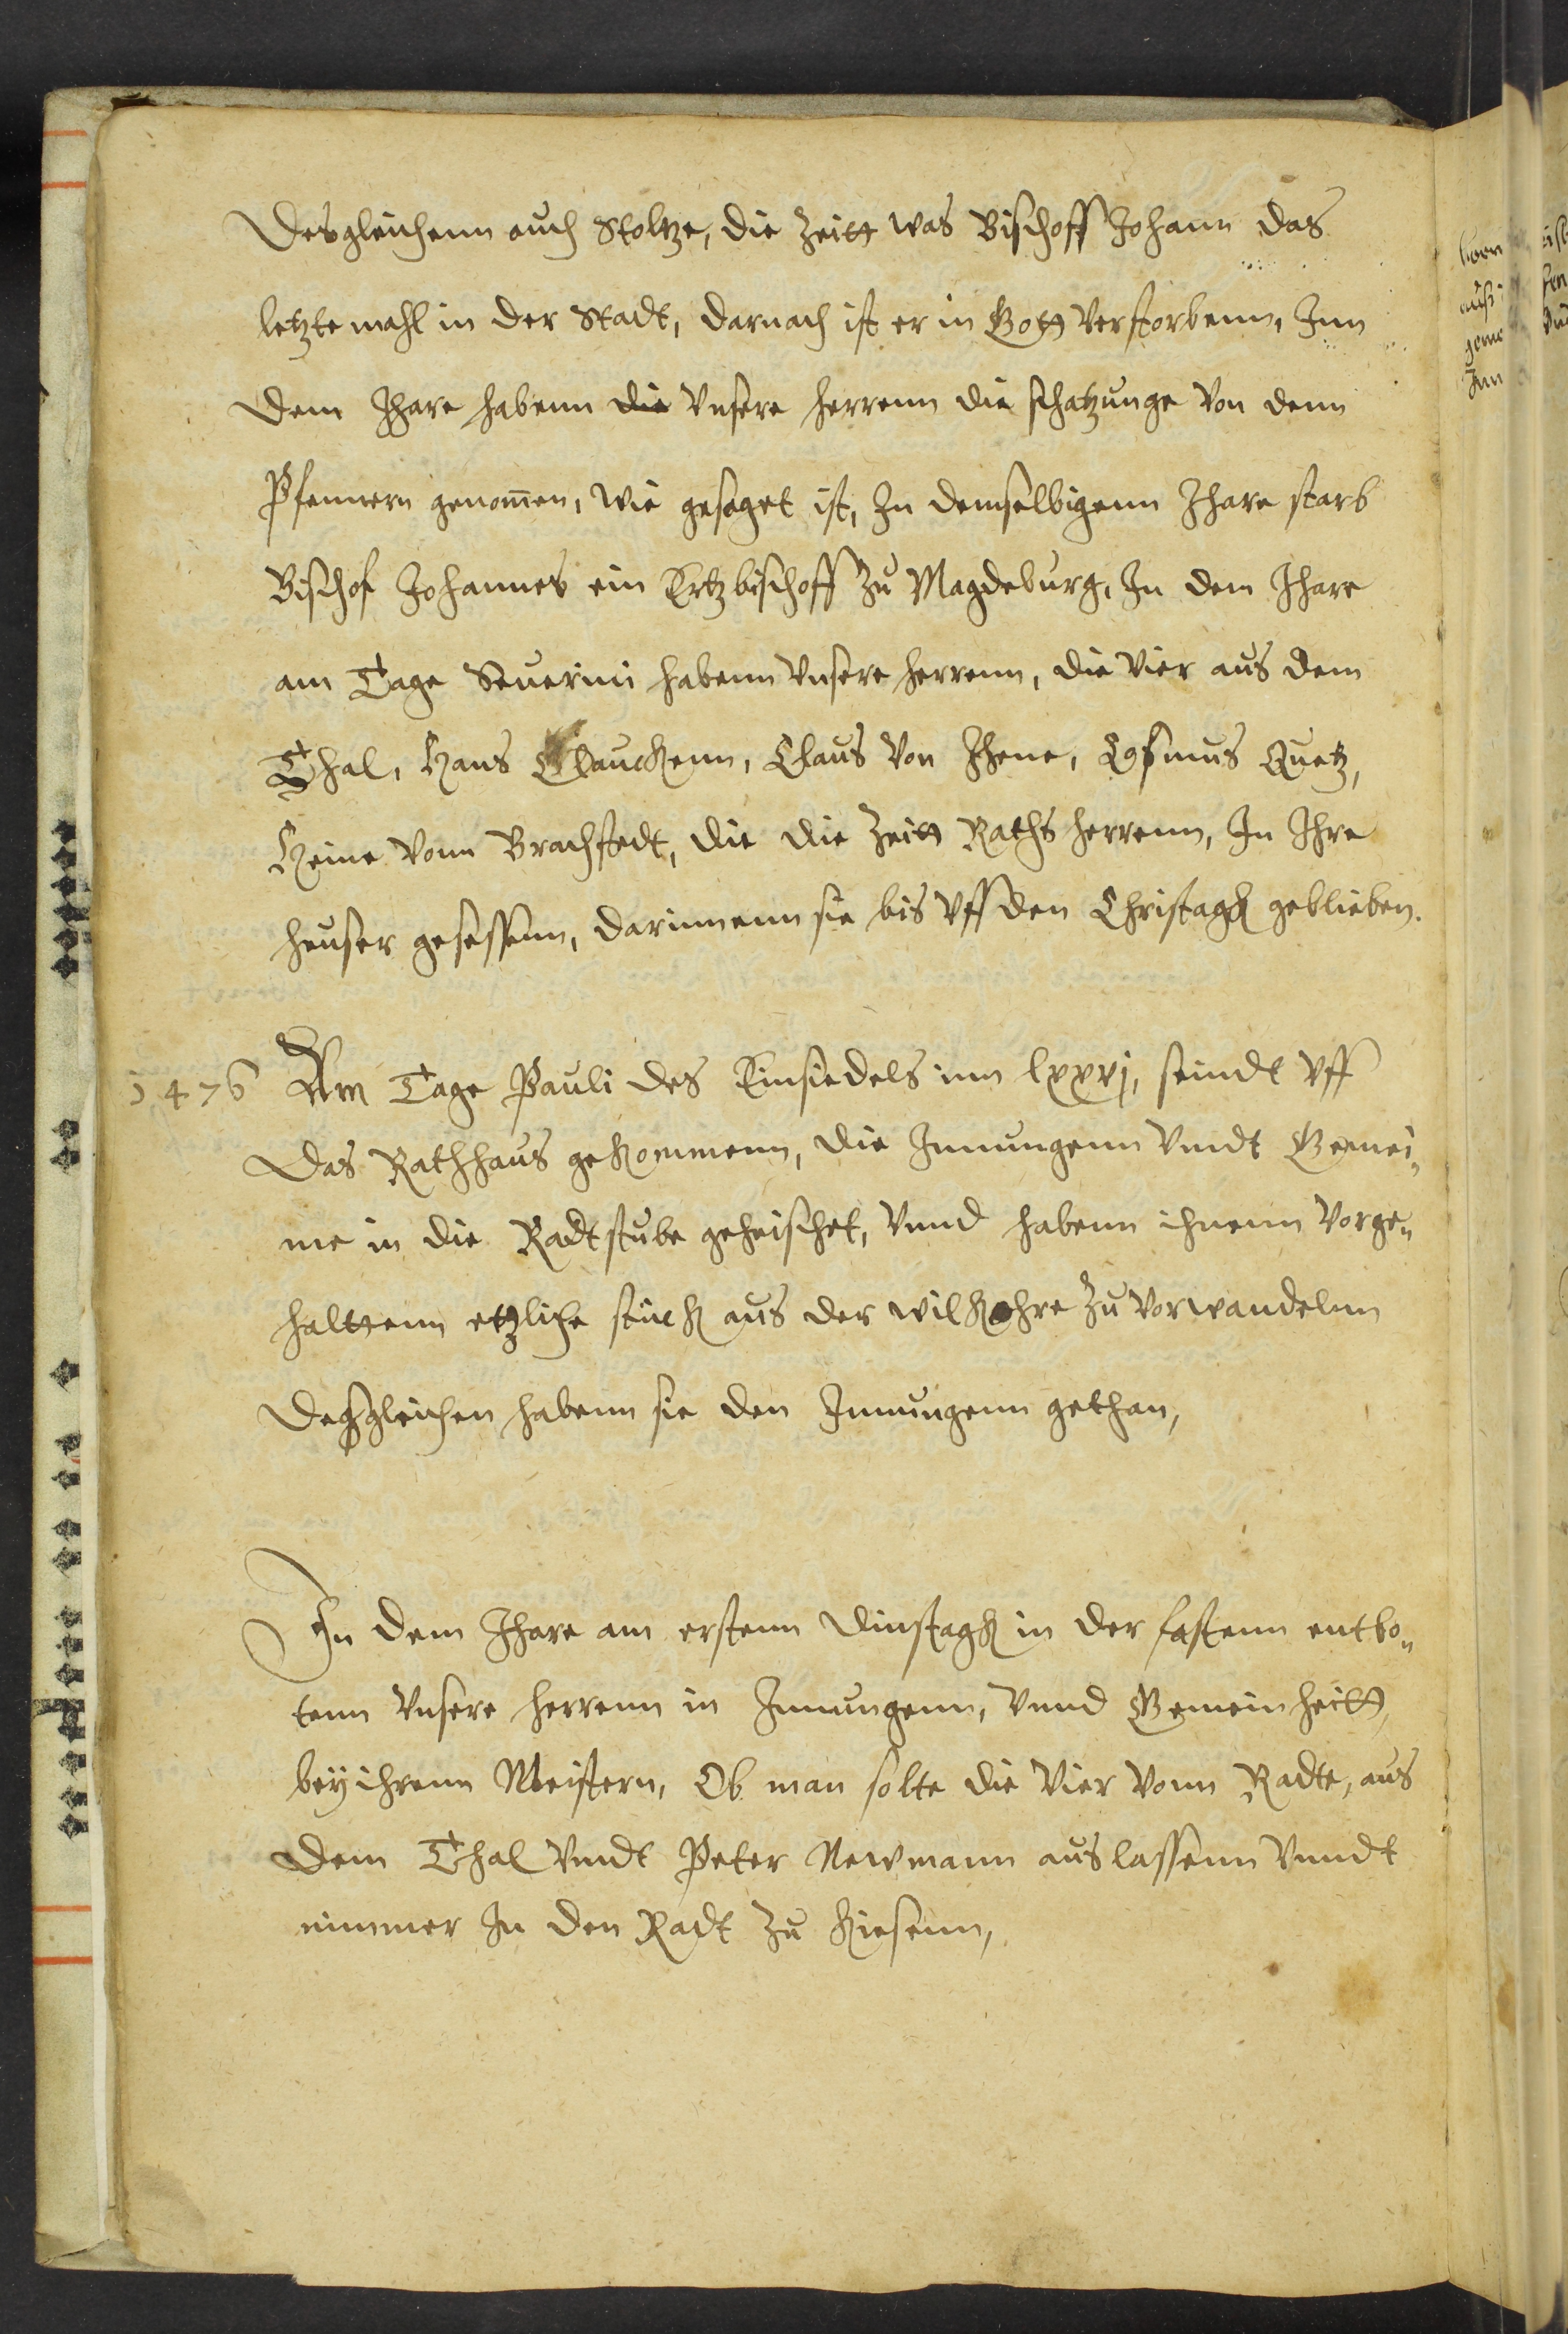 Desgleichenn auch Stoltze, die Zeitt was Bischoff Johann das
letzte mahl in der Stadt, darnach ist er in Gott verstorbenn, Inn
dem Ihare habenn die vnsere herrenn die schatzunge von denn
Pfennern genom̄en, wie gesaget ist, In demselbigenn Ihare starb
Bischof Johannes ein Ertzbischoff zu Magdeburg, In dem Ihare
am Tage Seuerini habenn vnsere herrenn, die vier aus dem
Thal, Hans Clauckenn, Claus von Ihene, Cosmus Quetz,
Heine vonn Brachstedt, die die Zeitt Raths herrenn, In Ihre
heuser gesessenn, darinnenn sie bis vff den Christagk geblieben.
1476 Am Tage Pauli des Einsiedels imm lxxvj, seindt vff
das Rathhaus gekommenn, die Innungenn vndt Gemei„
ne in die Radtstube geheischet, vnnd habenn ihnenn vorge„
haltzenn etzliche stück aus der wilkohre zu vorwandelnn
deßgleichen habenn sie den Innungenn gethan,
In dem Ihare am erstenn dinstagk in der fastenn entbo„
tenn vnsere herrenn in Innungenn, vnnd Gemeinheitt,
bey ihrenn Meistern, Ob man solte die vier vonn Radte, aus
dem Thal vndt Peter Newmann auslassenn vnndt
nimmer In den Radt zu kiesenn,